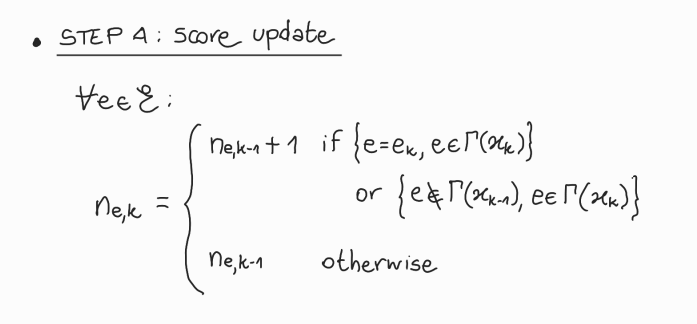 • STEP 4: Score update
∀e∈ℰ:
n_{e,k} = { n_{e,k-1} + 1 if {e=e_k, e∈Γ(x_k)}
or {e∉Γ(x_{k-1}), e∈Γ(x_k)}
n_{e,k-1} otherwise